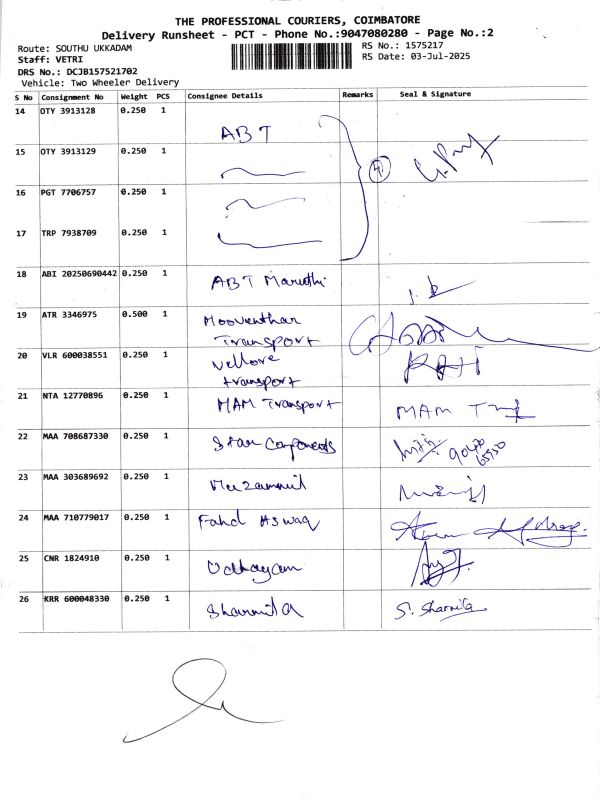 THE PROFESSIONAL COURIERS, COIMBATORE
Delivery Runsheet - PCT - Phone No.:9047080280 - Page No.:2
Route: SOUTHU UKKADAM
RS No.: 1575217
Staff: VETRI
RS Date: 03-Jul-2025
DRS No.: DCJB157521702
Vehicle: Two Wheeler Delivery
S No Consignment No Weight PCS Consignee Details Remarks Seal & Signature
14 OTY 3913128 0.250 1 ABT
15 OTY 3913129 0.250 1
16 PGT 7706757 0.250 1
17 TRP 7938709 0.250 1
18 ABI 20250690442 0.250 1 ABT Maruthi
19 ATR 3346975 0.500 1 Mooventhar
Transport
20 VLR 600038551 0.250 1 Vellore
transport
21 NTA 12770896 0.250 1 MAM Transport MAM
22 MAA 708687330 0.250 1 Star Components
23 MAA 303689692 0.250 1 Muzammil
24 MAA 710779017 0.250 1 Fahd Aswaq
25 CNR 1824910 0.250 1 Udhayam
26 KRR 600048330 0.250 1 Sharmila S. Sharmila